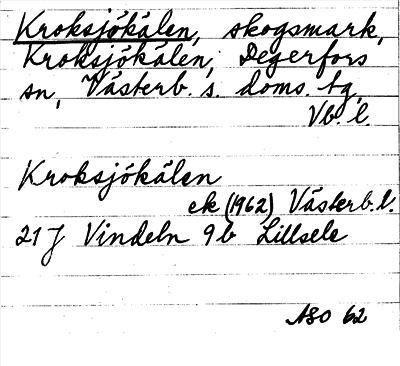 Kroksjökälen, skogsmark,
Kroksjökälen, Degerfors
sn, Västerb. s. doms. tg,
Vb. l.
Kroksjökälen
ek (1962) Västerb.l.
21 J Vindeln 9b Lillsele
ASO 62